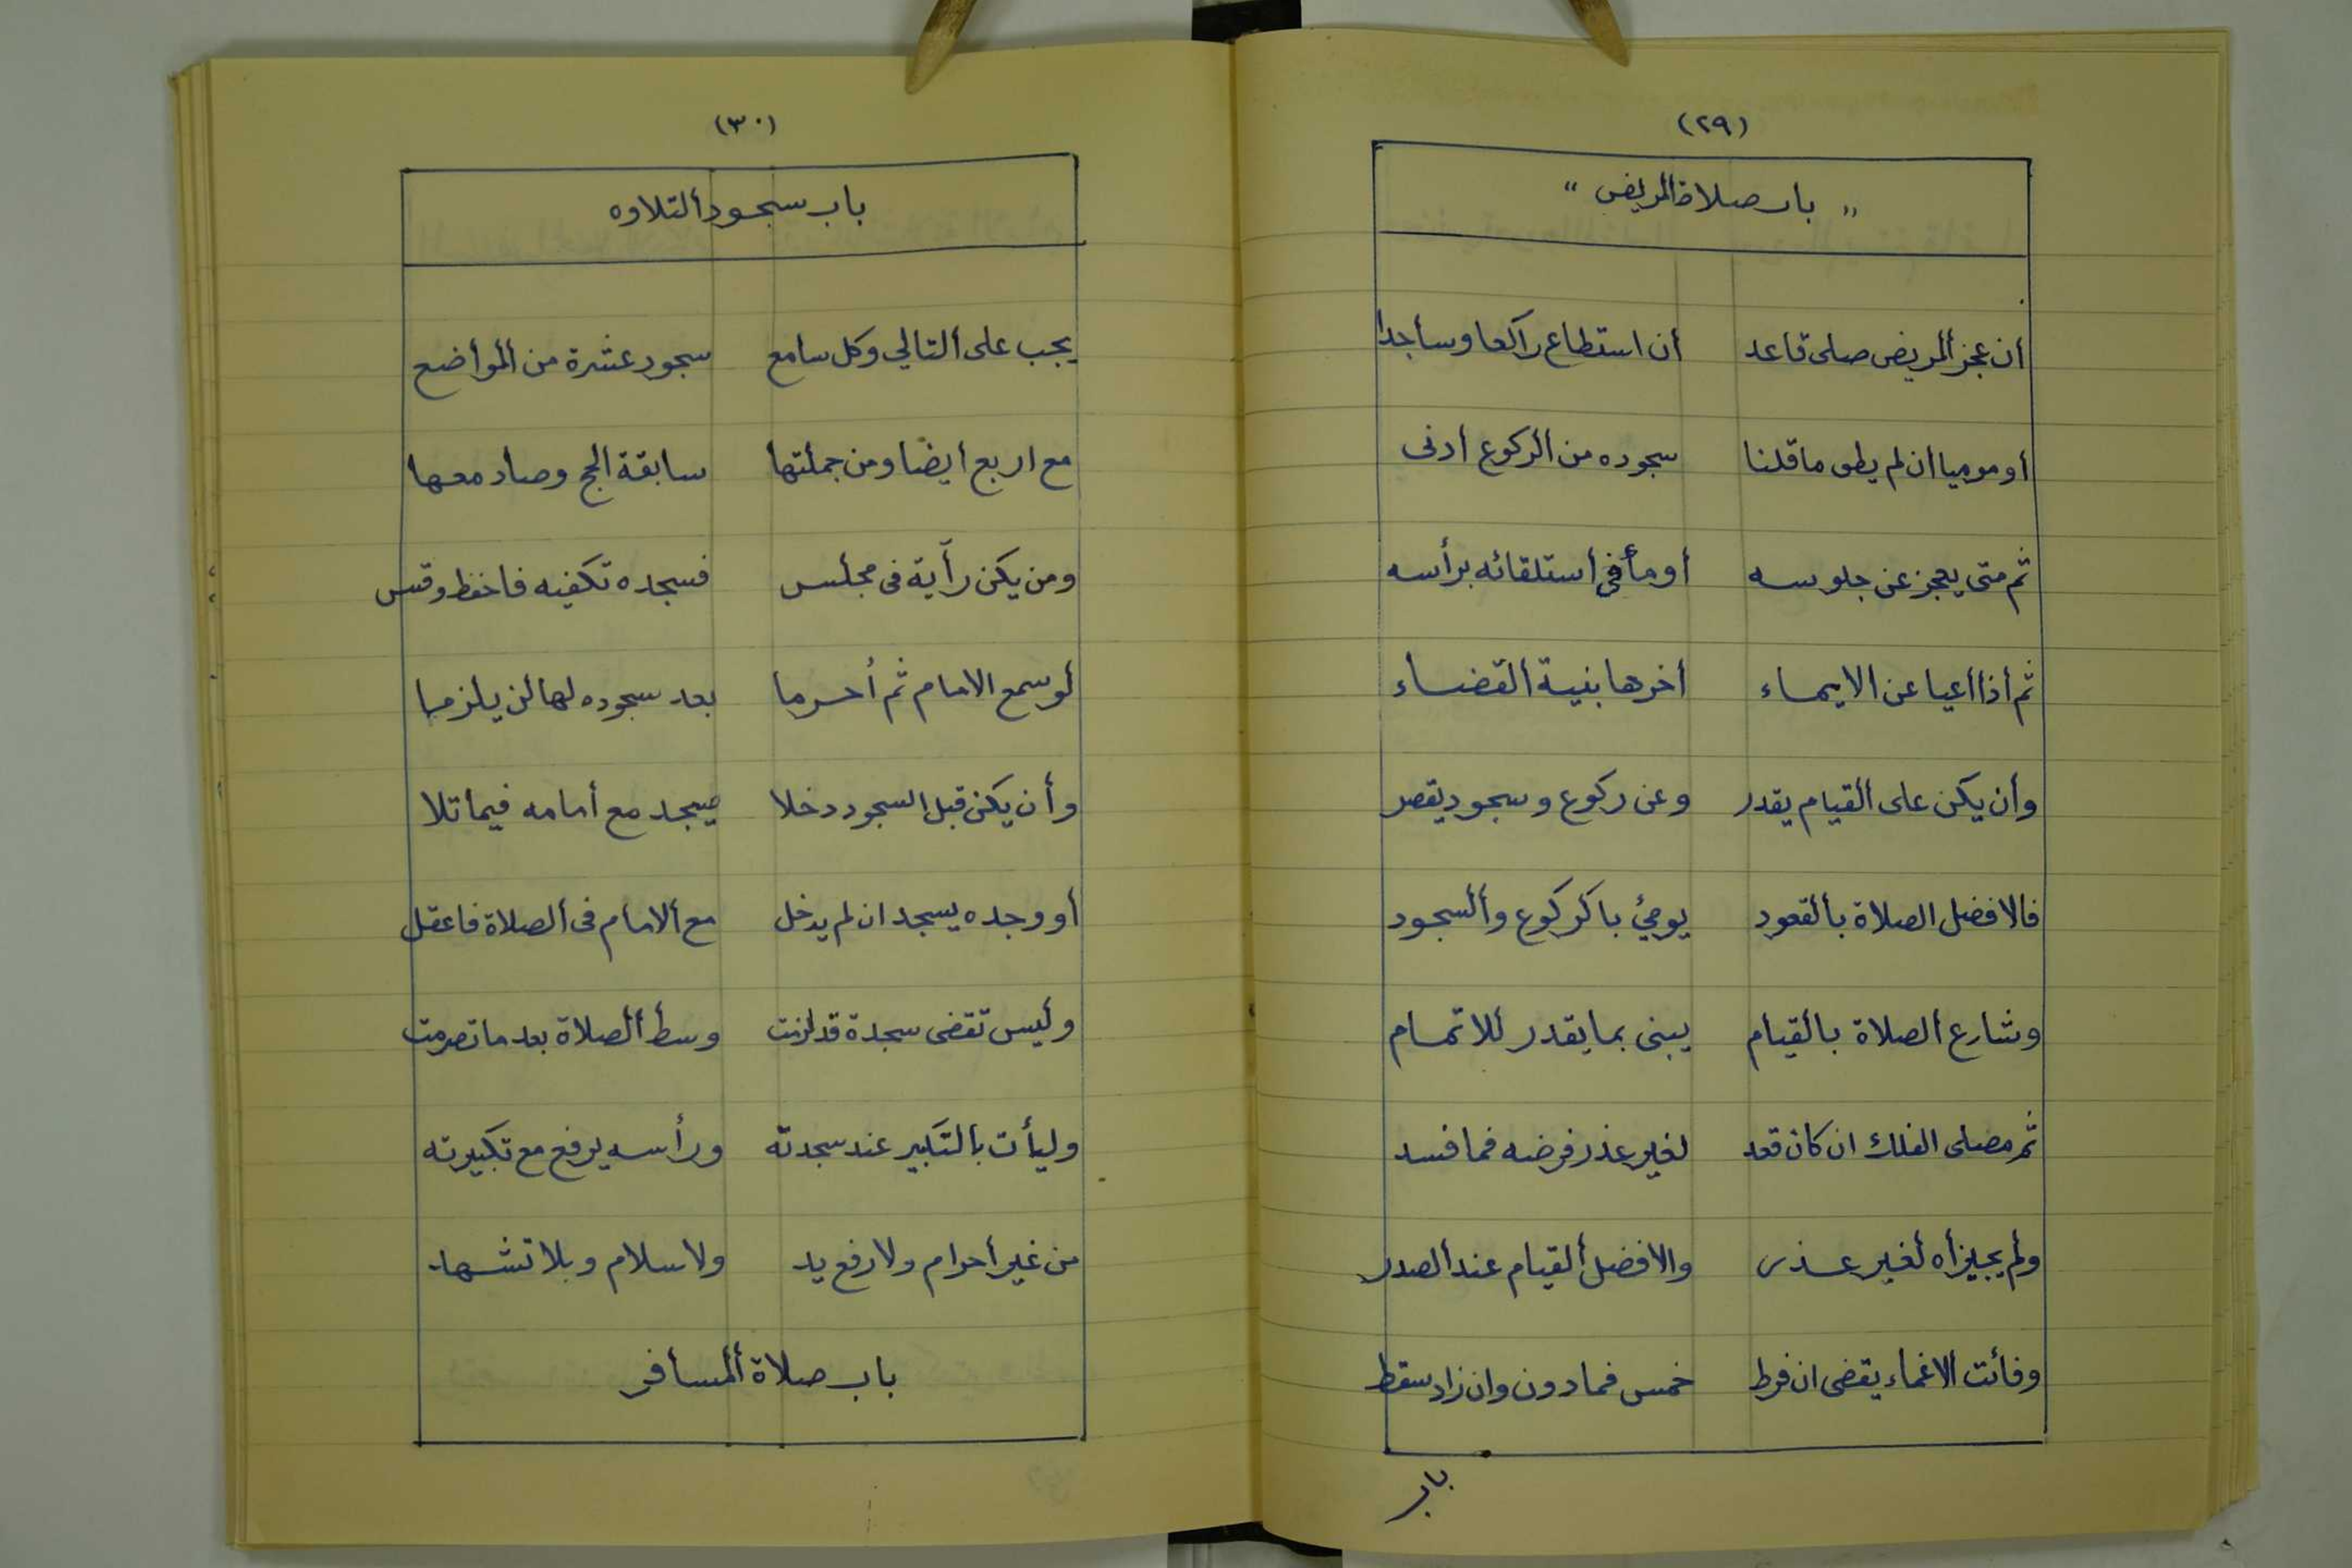 (٢٩)
" باب صلاة المريض "
أن عجز ألمريض صلى قاعد أن استطاع راكعا وساجدا
أو موميا ان لم يطق ما قلنا سجوده من ألركوع أدنى
ثم متى يعجز عن جلوسه أومأ في أستلقائه برأسه
ثم أذا أعيا عن الايماء أخرها بنية ألقضاء
وأن يكن على ألقيام يقدر وعن ركوع وسجود يقصر
فالافضل الصلاة بألقعود يومئ بألركوع وألسجود
وشارع ألصلاة بألقيام يبنى بما يقدر للاتمام
ثم مصلى الفلك ان كان قعد لغير عذر فرضه فما فسد
ولم يجيزأه لغير عذر والافضل ألقيام عند ألصدر
وفائت الاغماء يقضى ان فرط خمس فمادون وان زاد سقط
باب
(٣٠)
باب سجود ألتلاوه
يجب على ألتالي وكل سامع سجود عشرة من ألمواضع
مع اربع ايضًا ومن جملتها سابقة الحج وصاد معها
ومن يكن رأية فى مجلس فسجده تكفيه فاحفظ وقس
لو سمع الامام ثم أحرما بعد سجوده لها لن يلزما
وأن يكن قبل السجود دخلا يسجد مع أمامه فيما تلا
أو وجده يسجد ان لم يدخل مع ألامام فى ألصلاة فاعقل
وليس تقضى سجدة قد لزمت وسط ألصلاة بعد ما تصرمت
وليأت بالتكبير عند سجدته ورأسه يرفع مع تكبيرته
من غير أحرام ولا رفع يد ولا سلام وبلا تشهد
باب صلاة ألمسافر